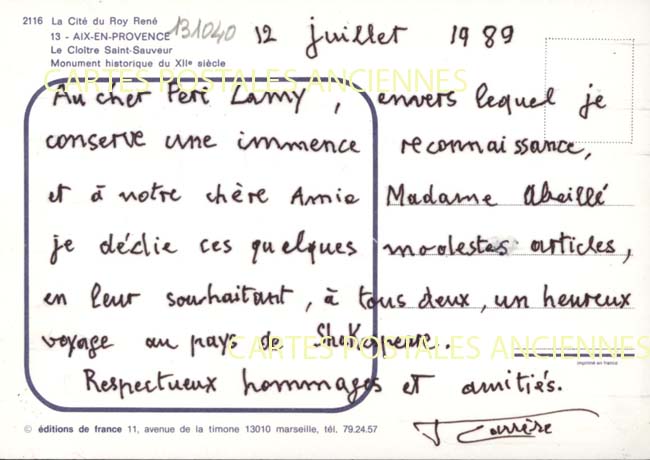 2116 La Cité du Roy René
13 - AIX-EN-PROVENCE
131040
12 juillet 1989
Le Cloître Saint-Sauveur
Monument historique du XIIe siècle
CARTES POSTALES ANCIENNES
Au cher Père Lamy, envers lequel je
conserve une immence reconnaissance,
et à notre chère Amie Madame Abeillé
je dédie ces quelques modestes articles,
en leur souhaitant, à tous deux, un heureux
voyage au pays de Shakespeare.
CARTES POSTALES ANCIENNES
imprimé en france
Respectueux hommages et amitiés.
J Carrère
© éditions de france 11, avenue de la timone 13010 marseille, tél. 79.24.57